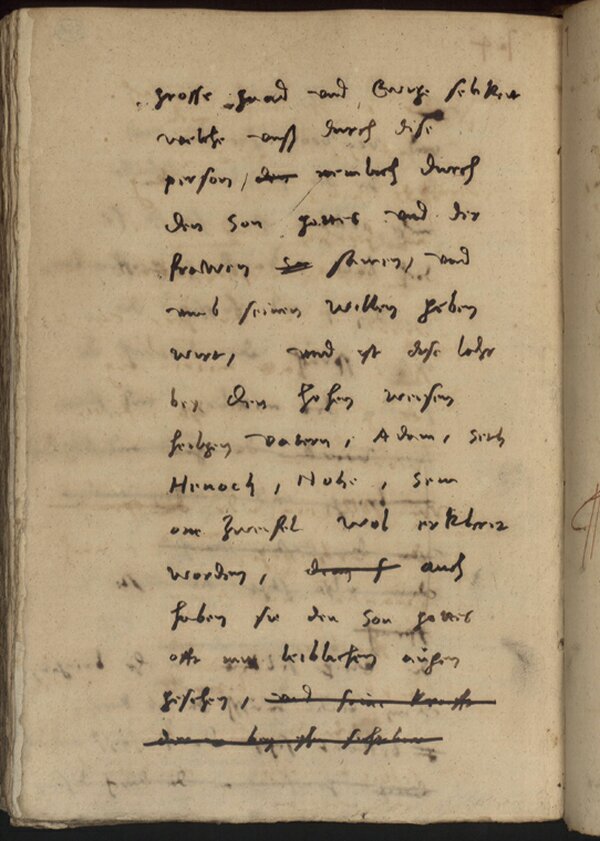 grosse gnad und Ewige selikeit
welche uns durch dise
person, der nemlich durch
den Son gottes und der
frawen samen, und
umb seinen willen geben
wirt, und ist dise lahr
bey den hohen weisen
heiligen vatern, Adam, Seth
Henoch, Nohe, Sem
one zweifel wol erkleret
worden, denn auch
haben sie den Son gottes
offt mit leiblichen augen
gesehen, und seine